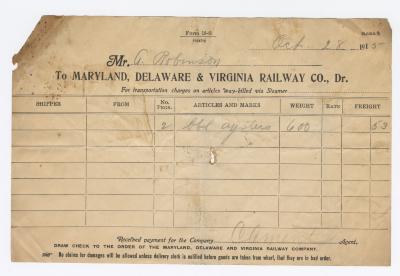 Form 19-S
Oct 28 1915
Mr. A. Robinson
To MARYLAND, DELAWARE & VIRGINIA RAILWAY CO., Dr.
For transportation charges on articles way-billed via Steamer
SHIPPER FROM No. PKGS. ARTICLES AND MARKS WEIGHT RATE FREIGHT
2 bbl oysters 600 53
Received payment for the Company Agent.
DRAW CHECK TO THE ORDER OF THE MARYLAND, DELAWARE AND VIRGINIA RAILWAY COMPANY.
No claims for damages will be allowed unless delivery clerk is notified before goods are taken from wharf, that they are in bad order.